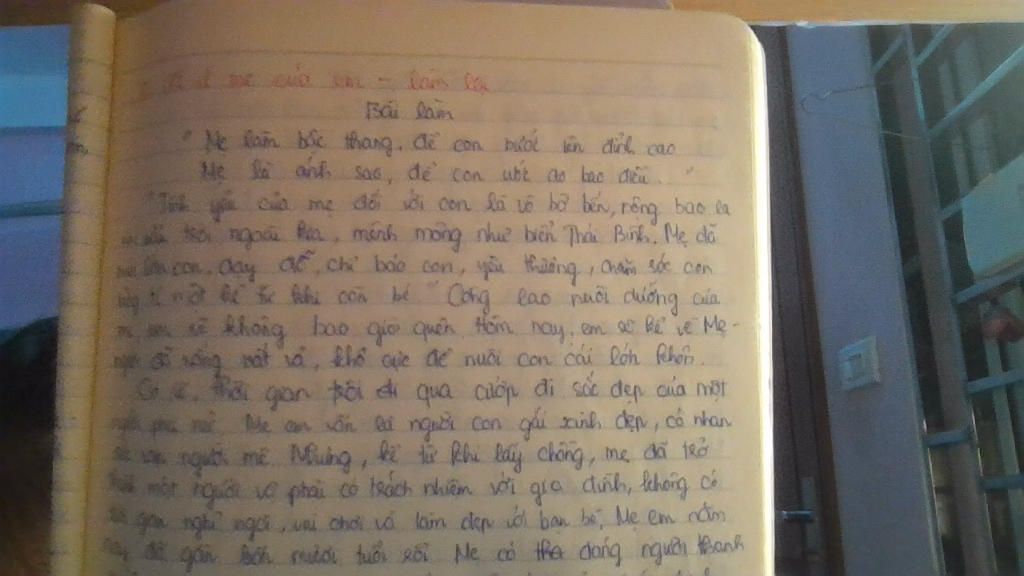 mẹ của em - làm lại
Bài làm
" Mẹ làm bậc thang, để con bước lên đỉnh cao
Mẹ là ánh sao, để con ước ao bao điều. "
"Tình yêu của mẹ đối với con là vô bờ bến, rộng bao la
trời ngoài kia, mênh mông như biển Thái Bình. Mẹ đã
con, dạy dỗ, chỉ bảo con, yêu thương, chăm sóc con
tí một kể từ khi còn bé " Công lao nuôi dưỡng của
mẹ em sẽ không bao giờ quên. Hôm nay, em sẽ kể về Mẹ -
người đã sống vất vả, khổ cực để nuôi con cái lớn khôn.
Có lẽ, thời gian trôi đi qua cướp đi sắc đẹp của một
người phụ nữ. Mẹ em vốn là người con gái xinh đẹp, có nhan
người mê. Nhưng, kể từ khi lấy chồng, mẹ đã trở
thành một người vợ phải có trách nhiệm với gia đình, không có
gian nghỉ ngơi, vui chơi và làm đẹp với bạn bè. Mẹ em năm
nay đã gần bốn mươi tuổi rồi. Mẹ có dáng người thanh